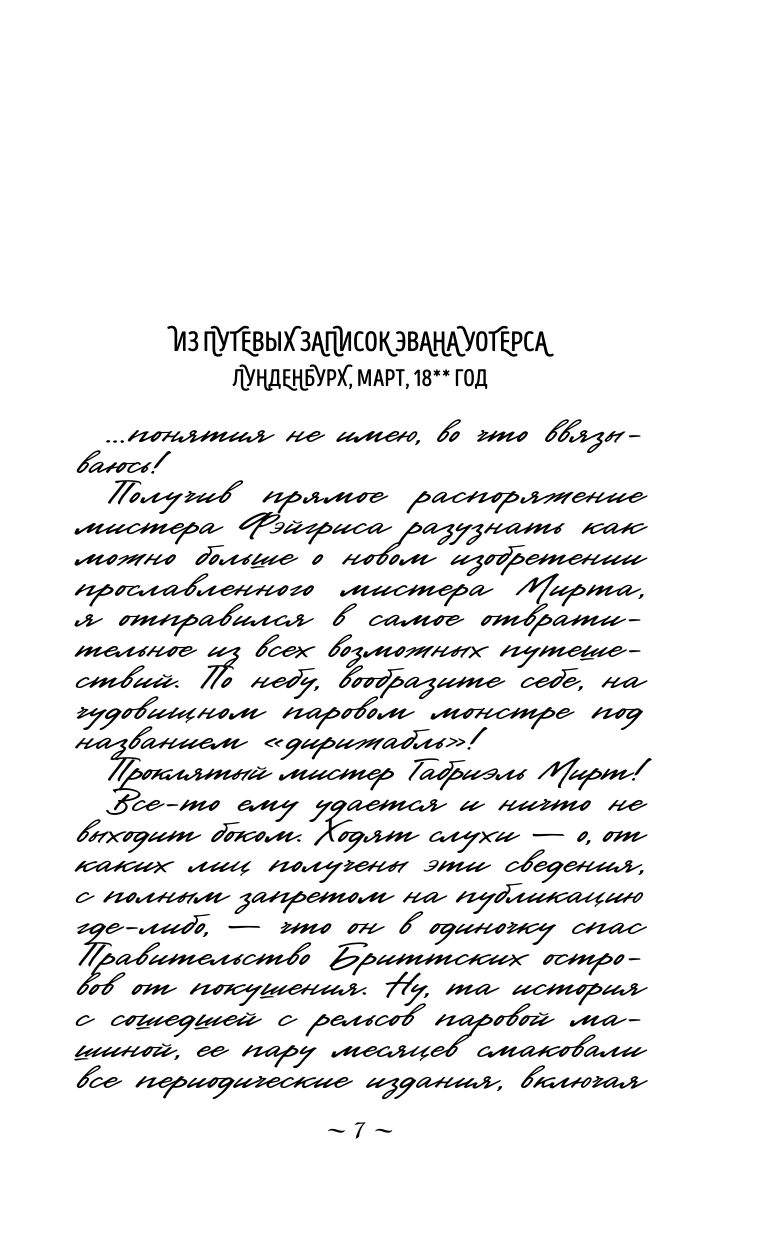 ИЗ ПУТЕВЫХ ЗАПИСОК ЭВАНА УОТЕРСА
ЛУНДЕНБУРХ, МАРТ, 18** ГОД
...понятия не имею, во что ввязы-
ваюсь!
Получив прямое распоряжение
мистера Фэйгриса разузнать как
можно больше о новом изобретении
прославленного мистера Мирта,
я отправился в самое отврати-
тельное из всех возможных путеше-
ствий. По небу, вообразите себе, на
чудовищном паровом монстре под
названием «дирижабль»!
Проклятый мистер Габриэль Мирт!
Все-то ему удается и ничто не
выходит боком. Ходят слухи — о, от
каких лиц получены эти сведения,
с полным запретом на публикацию
где-либо, — что он в одиночку спас
Правительство Бриттских остро-
вов от покушения. Ну, та история
с сошедшей с рельсов паровой ма-
шиной, ее пару месяцев смаковали
все периодические издания, включая
~ 7 ~